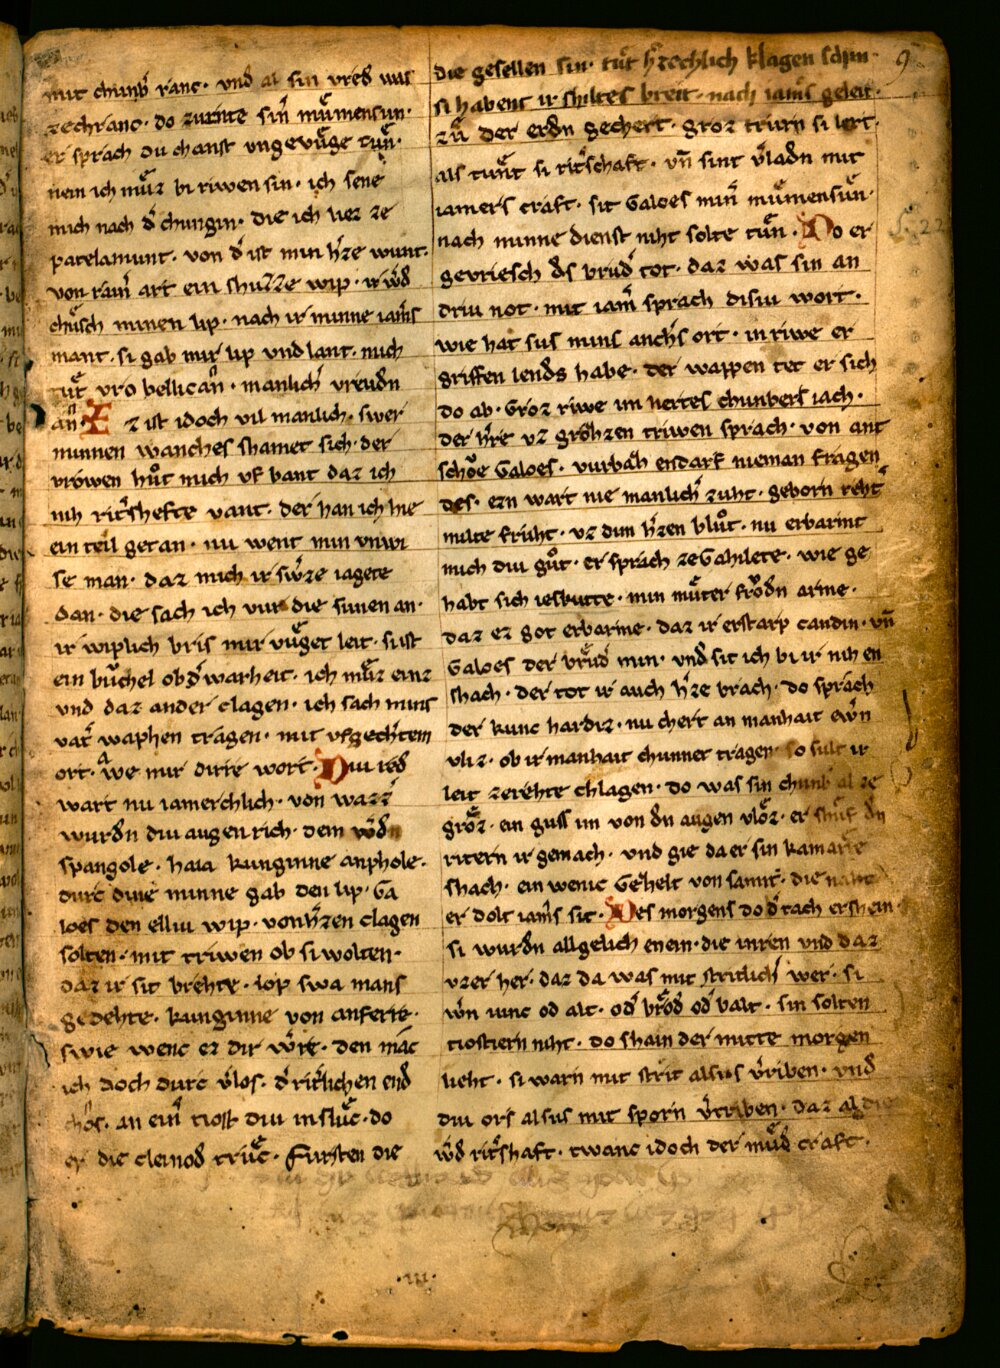 mit chunb̄ ranc · vnd al sin vreud was
zechranc · do zurnte sin̄ muͦmensun ·
er sprach du chanst vngevuͦge tuͦn ·
nein ich muͦz bi riwen sin · ich sene
mich nach d̄ chungin · die ich liez ze
patelamunt · von d̄ ist min h̄ze wunt ·
von raīn art ein shuzze wip · ir w̄d
chuͤsch minen lip · nach ir minne iam̄s
mant · si gab mir lip vnd lant · mich
tuͦt vro bellican̄ · manlich̄ vreudn
an̄ · Ez ist idoch vil manlich · swer
minnen wanches shamet sich · der
vrowen huͦt mich vf bant daz ich
nih rit̄shefte vant · der han ich hie
ein teil getan · nu went min vnwi
se man · daz mich ir sw̄ze iagete
dan · die sach ich vur die sunen an ·
ir wiplich bris mir vuͦget leit · si ist
ein buͦchel ob d̄ warheit · ich muͦz einz
vnd daz ander clagen · ich sach mins
vat̄ waphen tragen · mit vfgech̄tem
ort · Awe mir dirre wort · Diu red
wart nu iamerchlich · von wazz̄
wurdn diu augen rich · dem w̄dn
spangole · haia kunginne anphole ·
durc dine minne gab den lip · Ga
loes den elliu wip · von h̄zen clagen
solten · mit triwen ob si wolten ·
daz ir sit brehte · lop swa mans
gedehte · kunginne von anferre ·
swie wenc ez dir w̄re · den mac
ich doch durc v̄los · d̄ rit̄lichen end
chos · an ein̄ tiost diu in sluͦc · do
er die cleinod truͦc · Fursten die
die gesellen sin · tuͦt h̄zechlich klagen schin ·
si habent ir shiltes breit · nach iam̄s geleit ·
zuͦ der erdn gechert · groz truren si lert ·
als tuͦnt si rit̄schaft · vn̄ sint v̄ladn mit
iamers craft · sit Galoes min̄ muͦmensuͦn ·
nach minne dienst niht solte tuͦn · Do er
gevriesch ds brud̄ tot · daz was sin an
driu not · mit iam̄ sprach disiu wort ·
wie hat sus mins anch̄s ort · in riwe er
griffen lends habe · der wappen tet er sich
do ab · Groz riwe im hertes chunbers iach ·
der h̄re vz grozzen triwen sprach · von ant
schoe Galoes · vurbaz endarf nieman fragen
des · ezn wart nie manlich̄ zuht · geborn reht
milte fruht · vz dim h̄zen bluͦt · nu erbarmt
mich diu guͦt · er sprach ze Gahilete · wie ge
habt sich iesbutte · min muͦter frodn arme ·
daz ez got erbarme · daz ir erstarp candin · vn̄
Galoes der bruͦd̄ min · vnd sit ich bi ir nih en
shach · der tot ir auch h̄ze brach · do sprach
der kunc hardiz · nu chert an manhait ew̄n
vliz · ob ir manhait chunnet tragen · so sult ir
leit zerehte chlagen · do was sin chunb̄ al ze
groz · ein guss im von dn augen vloz · er shuf dn
ritern ir gemach · vnd gie da er sin kamarre
shach · ein wenic Gezelt von samit · die naht
er dolt iam̄s sit · Des morgens do d̄ tach ershein ·
si wurdn allgelich enein · die inren vnd daz
vzer her · daz da was mit stritlich̄ wer · si
w̄n iunc od alt · od̄ brod̄ od̄ balt · sin solten
tiostiern niht · do shain der mitte morgen
lieht · si warn mit strit alsus v̄riben · vnd
diu ors alsus mit sporn v̄triben · daz al die
w̄d rit̄shaft · twanc idoch der muͦd̄ craft ·
· III ·